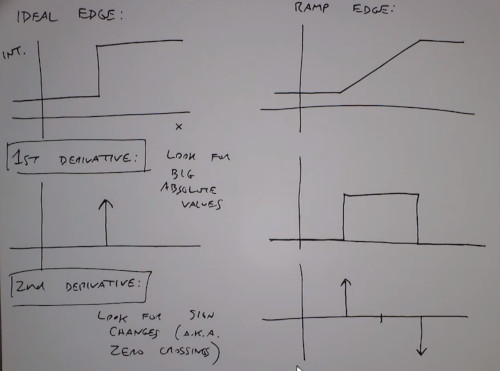 IDEAL EDGE:
RAMP EDGE:
INT.
x
1ST DERIVATIVE:
LOOK FOR
BIG
ABSOLUTE
VALUES
2nd DERIVATIVE:
LOOK FOR SIGN
CHANGES (A.K.A.
ZERO CROSSINGS)